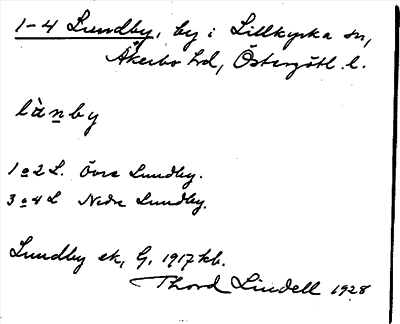 1-4 Lundby, by i Lillkyrka sn,
Åkerbo hd, Östergötl. l.
lànby
1 o 2 L. Övre Lundby.
3 o 4 L Nedre Lundby.
Lundby ek, G. 1917 kb.
Thord Lindell 1928